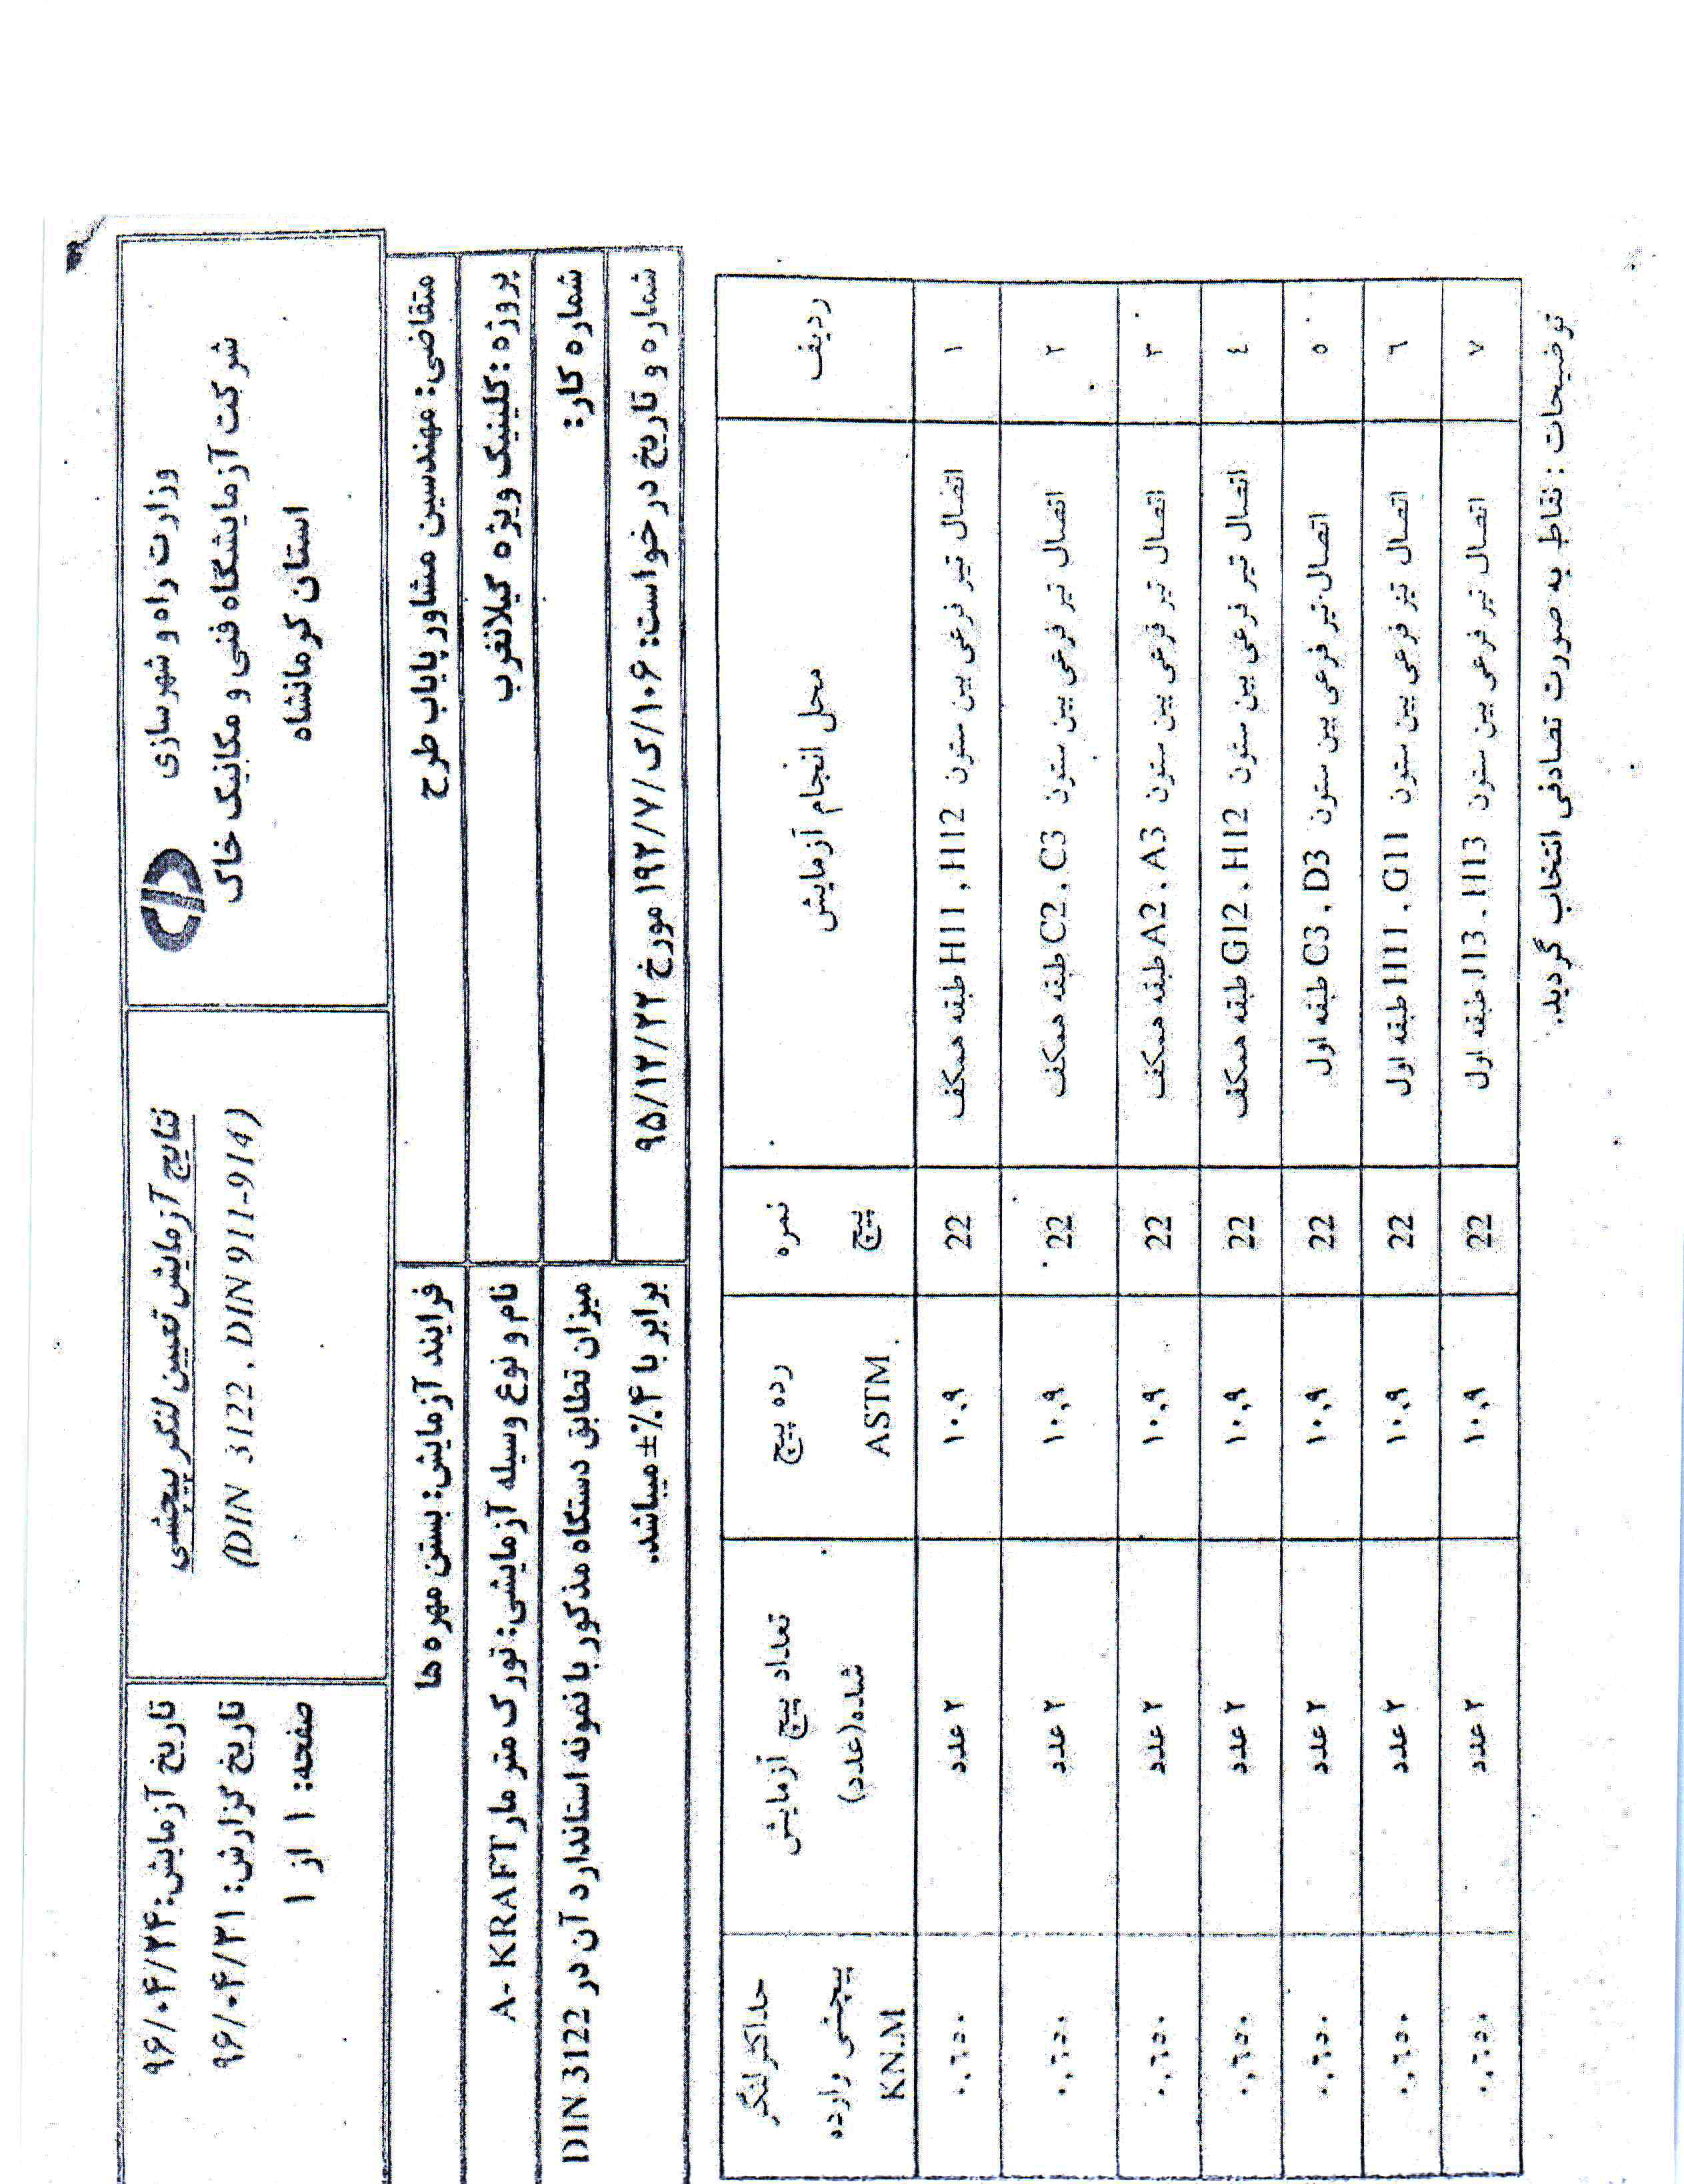 وزارت راه و شهرسازی
شرکت آزمایشگاه فنی و مکانیک خاک
استان کرمانشاه
نتایج آزمایش تعیین لنگر پیچشی
(DIN 3122 , DIN 911-914)
تاریخ آزمایش: ۹۶/۰۴/۲۴
تاریخ گزارش: ۹۶/۰۴/۳۱
صفحه: ۱ از ۱
متقاضی: مهندسین مشاور پایاب طرح
فرایند آزمایش: بستن مهره ها
پروژه: کلینیک ویژه گیلانغرب
نام و نوع وسیله آزمایشی: تورک متر مار A- KRAFT
شماره کار:
میزان تطابق دستگاه مذکور با نمونه استاندارد آن در DIN 3122
شماره و تاریخ درخواست: ۱۹۲/۷/ک/۱۰۶ مورخ ۹۵/۱۲/۲۲
برابر با ۴٪± میباشد.
ردیف محل انجام آزمایش نمره پیچ رده پیچ ASTM تعداد پیچ آزمایش شده(عدد) حداکثر لنگر پیچشی وارده KN.M
۱ اتصال تیر فرعی بین ستون H11 , H12 طبقه همکف 22 ۱۰.۹ ۲ عدد ۰.٦٥٠
۲ اتصال تیر فرعی بین ستون C2 , C3 طبقه همکف 22 ۱۰.۹ ۲ عدد ۰.٦٥٠
۳ اتصال تیر فرعی بین ستون A2 , A3 طبقه همکف 22 ۱۰.۹ ۲ عدد ۰.٦٥٠
٤ اتصال تیر فرعی بین ستون G12 , H12 طبقه همکف 22 ۱۰.۹ ۲ عدد ۰.٦٥٠
٥ اتصال تیر فرعی بین ستون C3 , D3 طبقه اول 22 ۱۰.۹ ۲ عدد ۰.٦٥٠
٦ اتصال تیر فرعی بین ستون H11 , G11 طبقه اول 22 ۱۰.۹ ۲ عدد ۰.٦٥٠
۷ اتصال تیر فرعی بین ستون J13 , H13 طبقه اول 22 ۱۰.۹ ۲ عدد ۰.٦٥٠
توضیحات : نقاط به صورت تصادفی انتخاب گردید.